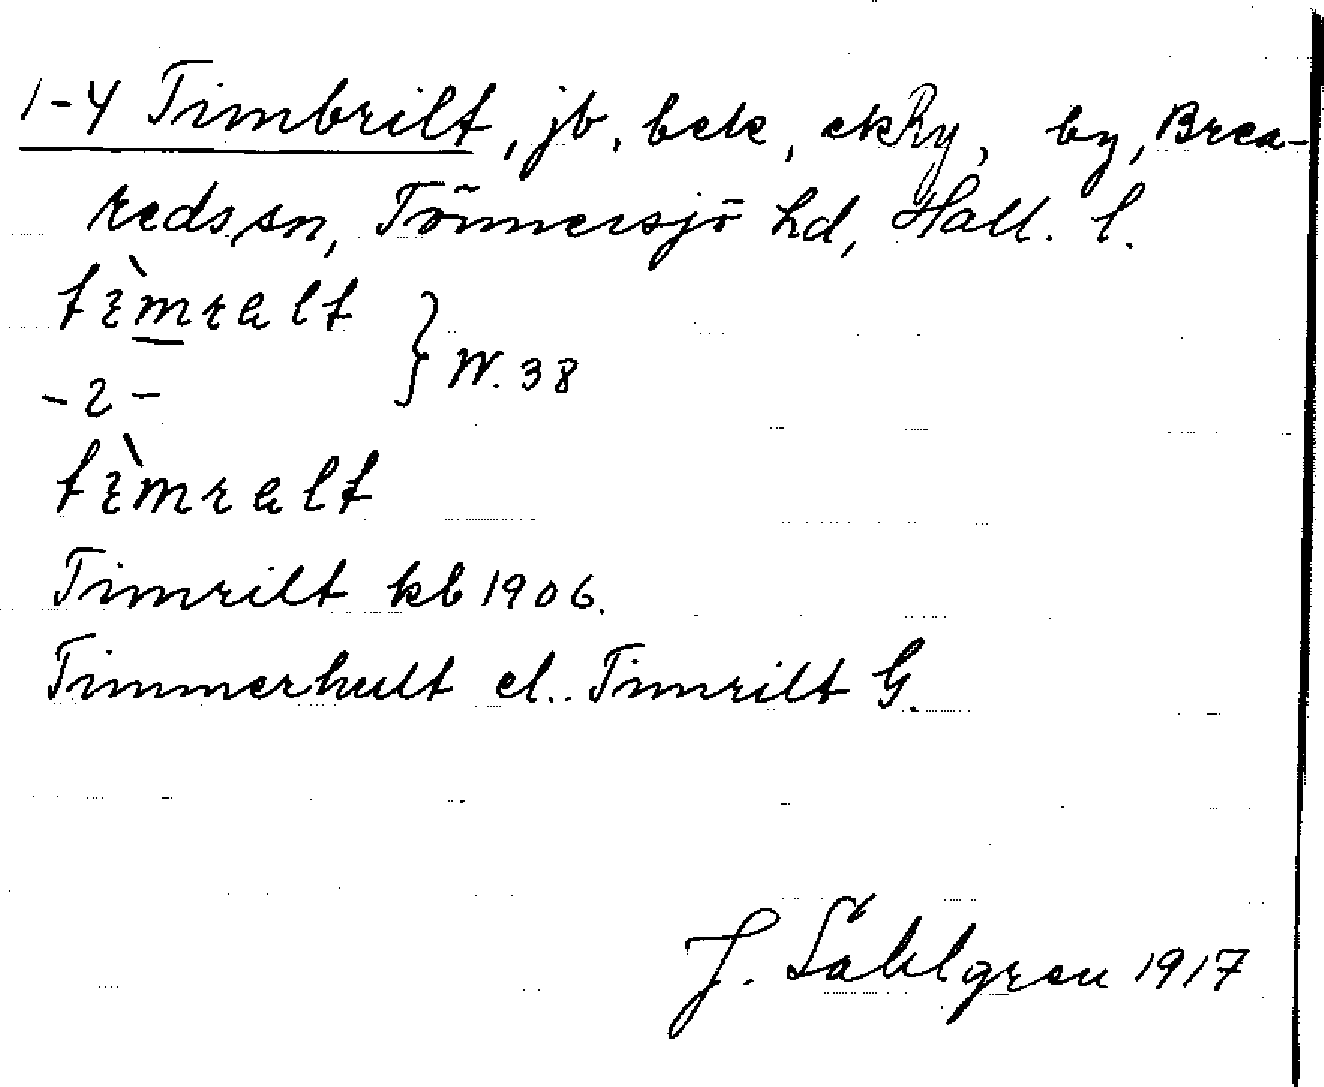 1-4 Timbrilt, jb, bek, ekRy, by, Brea-
redssn, Tönnersjö hd, Hall. l.
tìmralt
-2-
} W. 38
tìmralt
Timrilt kb 1906.
Timmerhult el. Timrilt G.
J. Sahlgren 1917